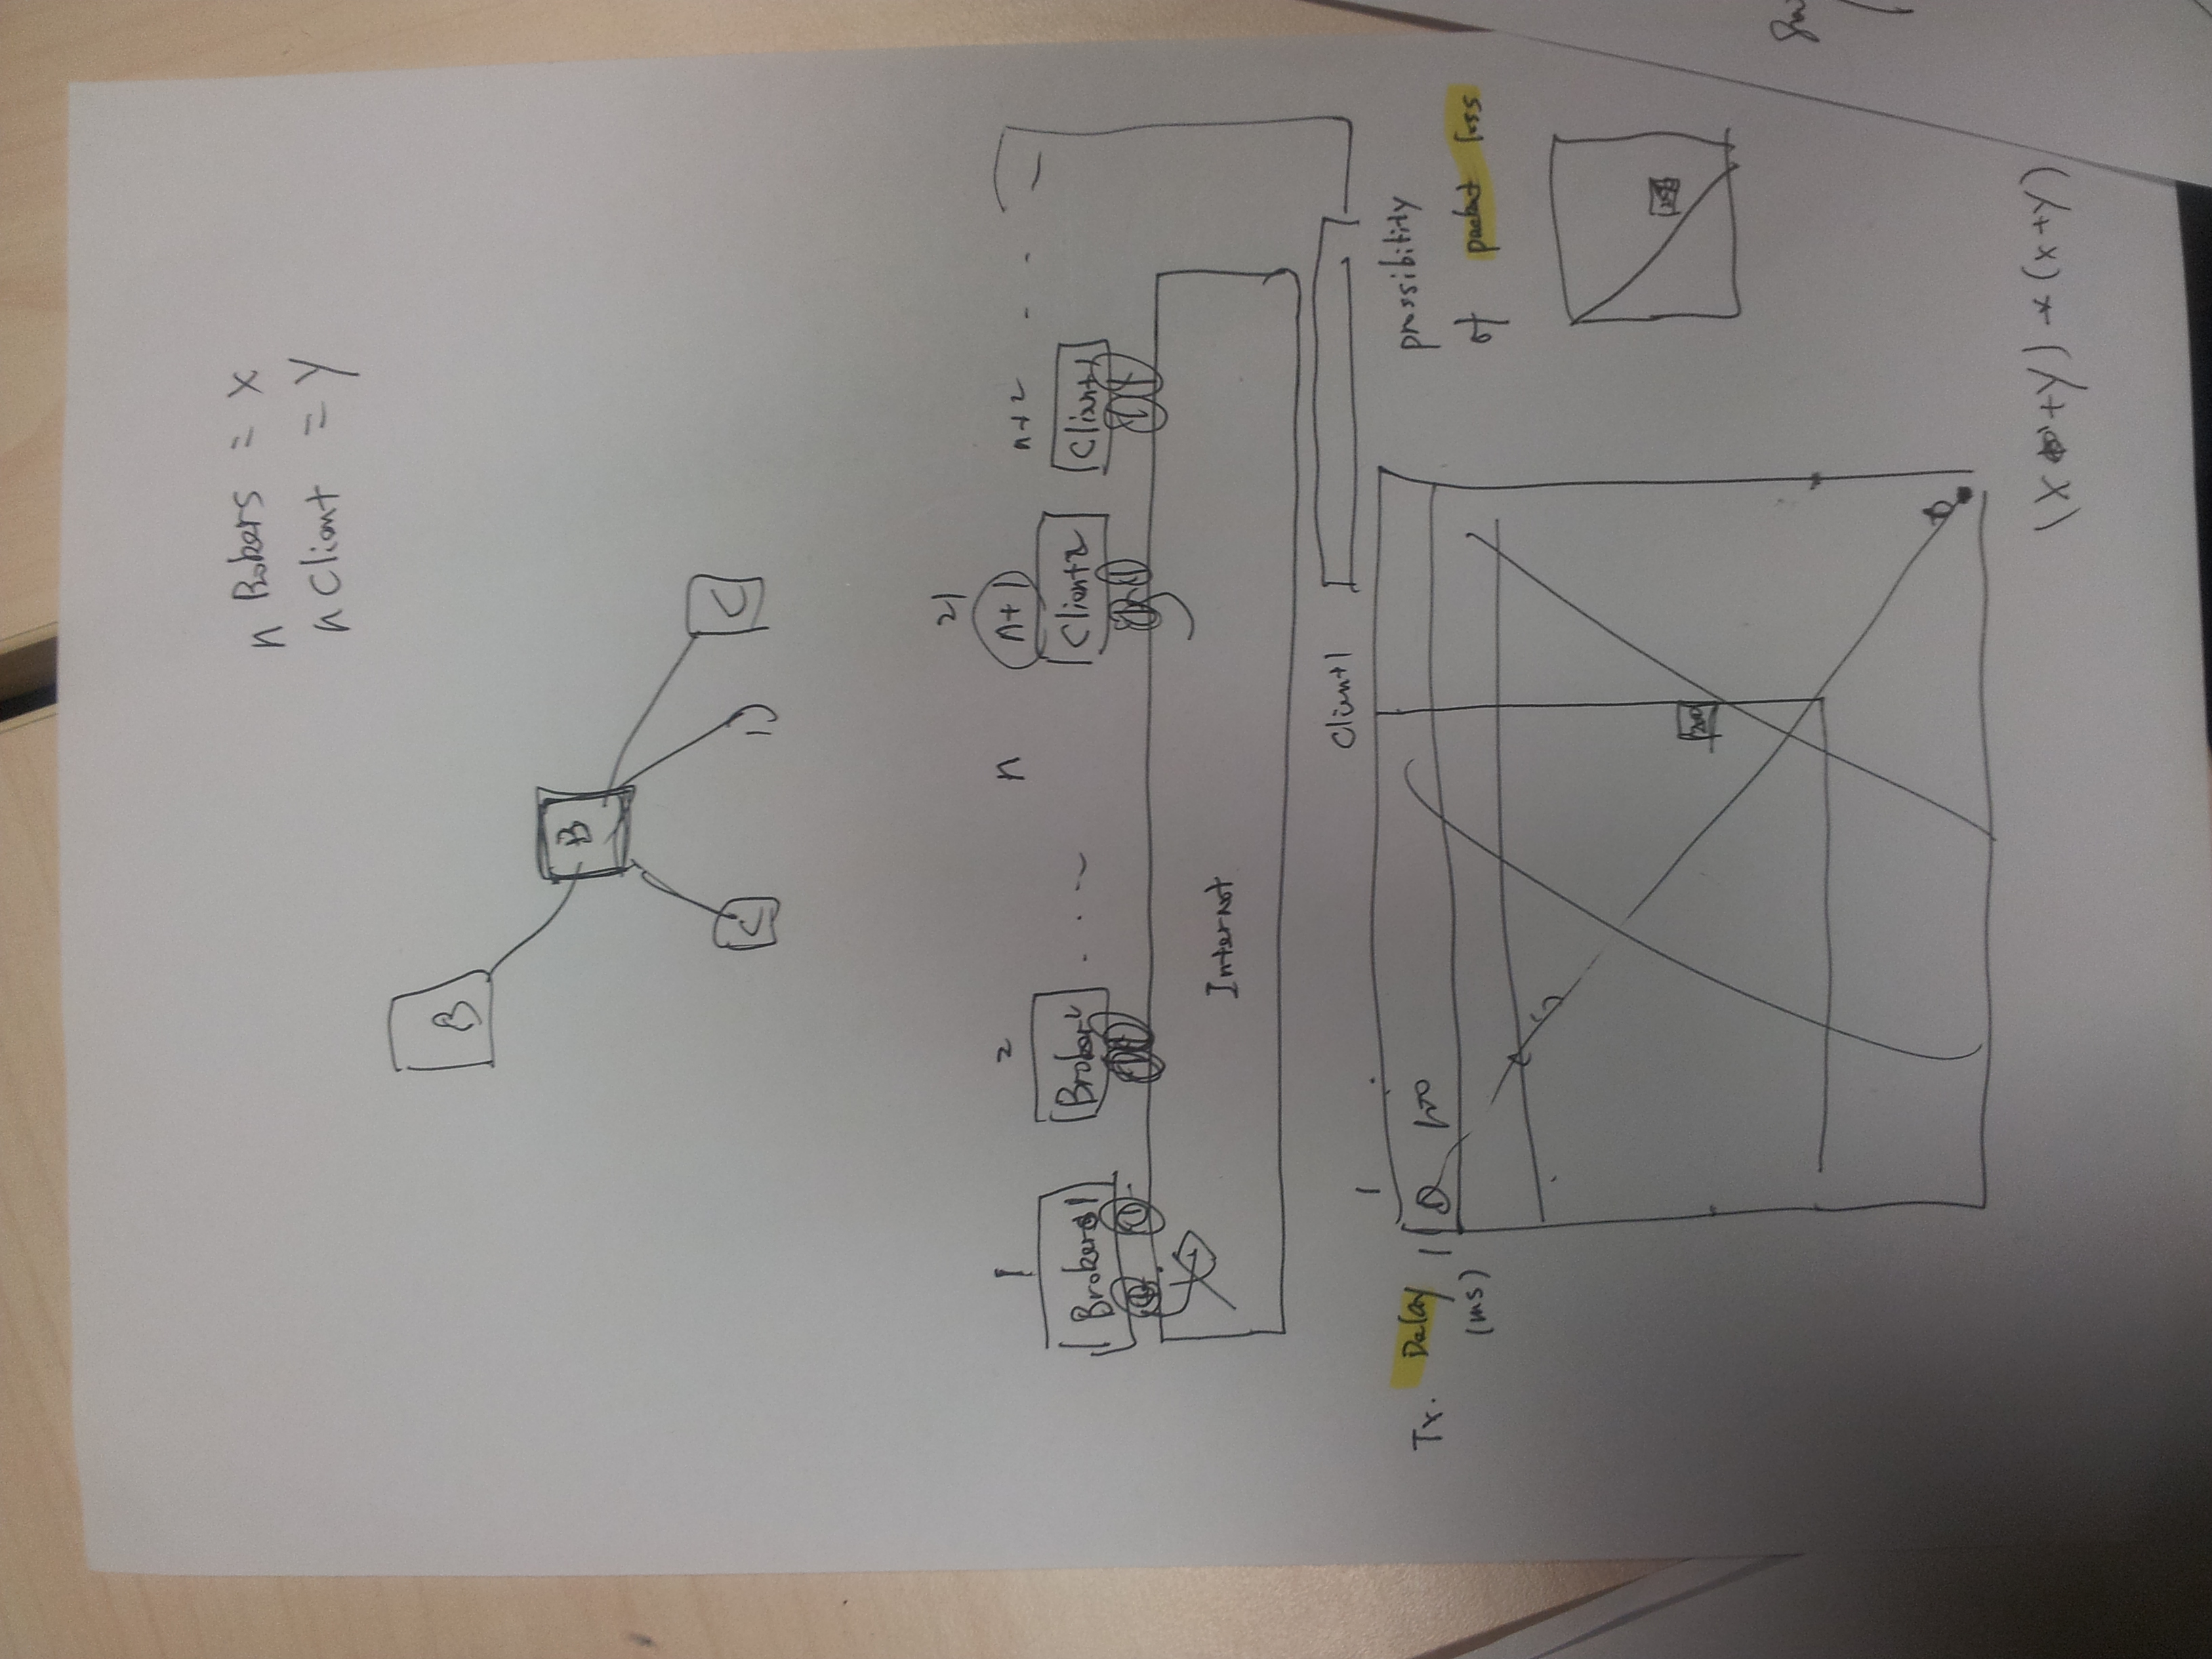 n Brokers = X
n Client = Y
B
B
C
C
21
1
2
n
n+1
n+2
Broker 1
Broker 2
Client 2
Client 1
Internet
Client 1
1
Tx. Delay
(ms)
1
0
100
prossibitity
of packet loss
200
0
(X +Y) * (X+Y)